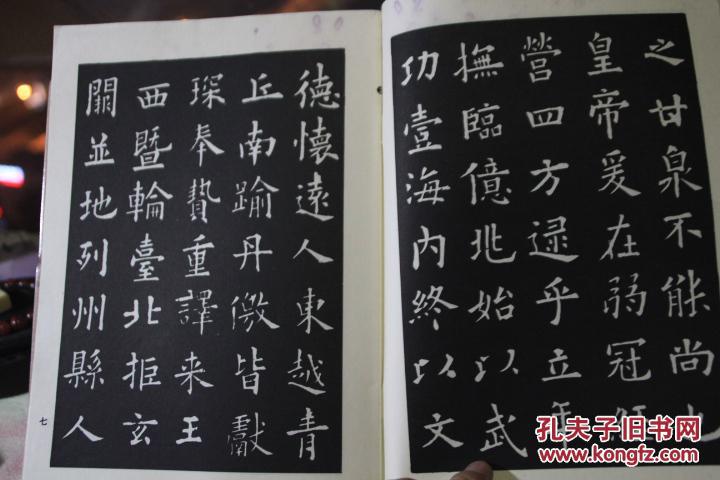 之甘泉不能尚也
皇帝爰在弱冠經
營四方逮乎立年
撫臨億兆始以武
功壹海內終以文
德懷遠人東越青
丘南踰丹徼皆獻
琛奉贄重譯来王
西暨輪臺北拒玄
闕並地列州縣人
七
孔夫子旧书网
www.kongfz.com